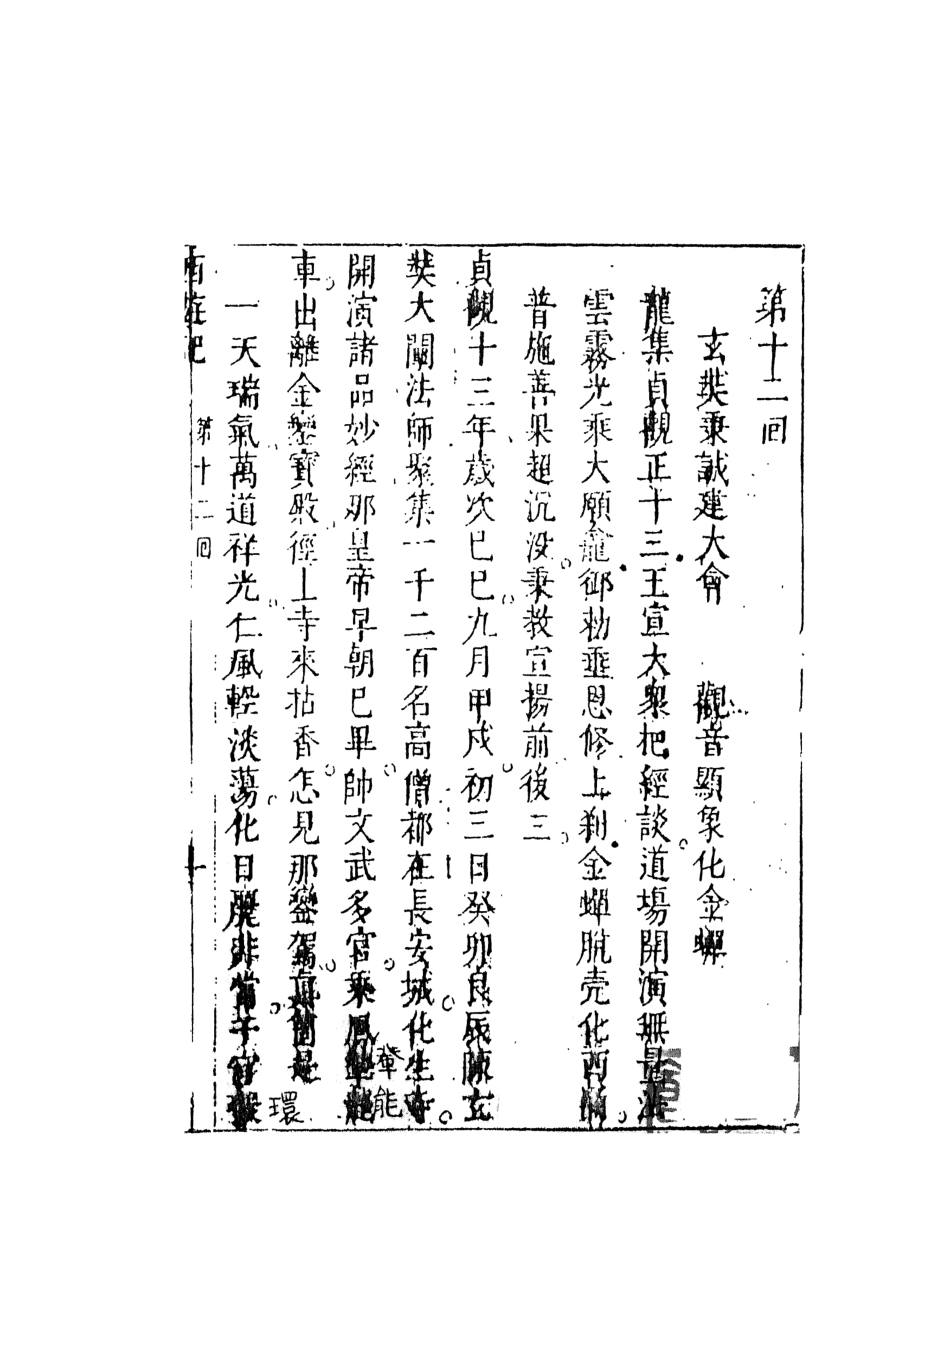 第十二回
玄奘秉誠建大會　觀音顯象化金蟬
龍集貞觀正十三王宣大衆把經談道場開演無量法
雲霧光乘大願龕御勑垂恩修上刹金蟬脫壳化西
普施善果超沉没秉教宣揚前後三
貞觀十三年歲次己巳九月甲戍初三日癸卯良辰陳玄
奘大闡法師聚集一千二百名高僧都在長安城化生寺
開演諸品妙經那皇帝早朝已畢帥文武多官乘鳳輦龍
輦能
車出離金鑾寶殿徑上寺來拈香怎見那鑾駕真箇是
環
一天瑞氣萬道祥光仁風輕淡蕩化日麗非常千官
西遊記　第十二回　十